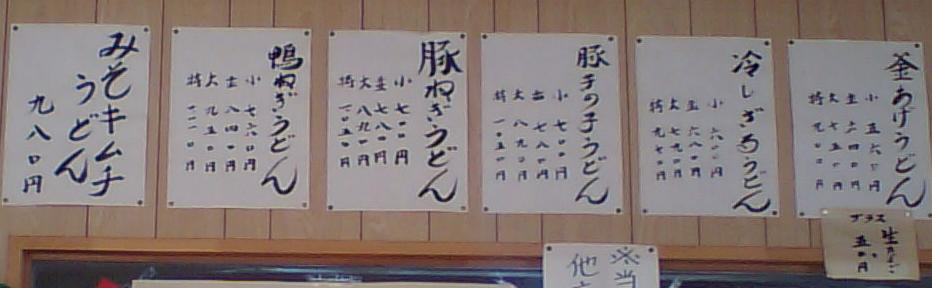 釜あげうどん
小 五六〇円
並 六四〇円
大
特
プラス
生たまご
五〇円
冷しざるうどん
小 六〇〇円
並 六八〇円
大 七九〇円
特 九七〇円
豚きのこうどん
小 七〇〇円
並 七八〇円
大 八九〇円
特 一〇五〇円
豚ねぎうどん
小 七〇〇円
並 七八〇円
大 八九〇円
特 一〇五〇円
鴨ねぎうどん
小 七六〇円
並 八四〇円
大 九五〇円
特 一一一〇円
みそキムチ
うどん
九八〇円
※当
他